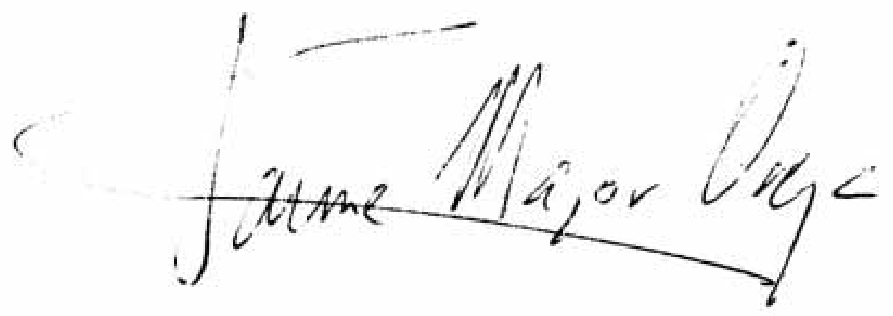 Jaime Mayor Oreja